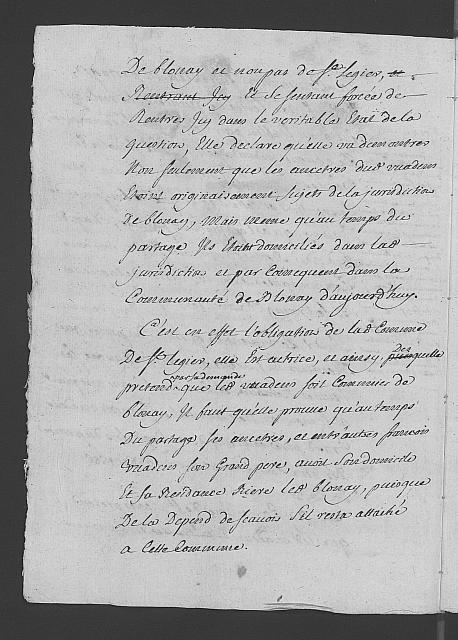 De blonay et non pas de St. Legier, et
Rentrant Icy Et se sentant forcée de
Rentrer Icy dans le veritable Etat de la
question, Elle declare qu'elle va demontrer
Non seulement que les ancetres dudt vuadens
Etoint originairement sujets de la jurisdiction
de blonay, Mais meme qu'au temps du
partage Ils Etoint domiciliés dans ladt
jurisdiction et par Consequent dans la
Communauté de Blonay d'aujourd'huy.
C'est en effet l'obligation de ladt Comune
De St. Legier, elle Est actrice, et ainsy Des puisquelle
par sa demande
pretend que ledt vuadens soit Communier de
blonay, Il faut qu'elle prouve qu'au temps
Du partage ses ancetres, et entr'autres francois
vuadens son Grand pere, avoit son domicile
Et sa Residance Riere ledt blonay, puisque
De la Depend de scavoir s'il resta attaché
a Cette Commune.